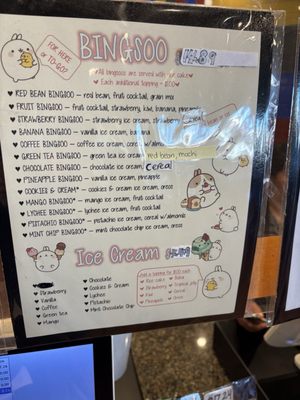 FOR HERE
OR TO-GO?
BINGSOO
All bingsoos are served with rice cake
Each additional topping =
RED BEAN BINGSOO – red bean, fruit cocktail, grain mix
FRUIT BINGSOO – fruit cocktail, strawberry, kiwi, banana, pineapple
STRAWBERRY BINGSOO – strawberry ice cream, strawberry, Cereal
BANANA BINGSOO – vanilla ice cream, banana
COFFEE BINGSOO – coffee ice cream, cereal w/almond
GREEN TEA BINGSOO – green tea ice cream, red bean, mochi
CHOCOLATE BINGSOO – chocolate ice cream, Cereal
PINEAPPLE BINGSOO – vanilla ice cream, pineapple
COOKIES & CREAM* – cookies & cream ice cream, oreos
MANGO BINGSOO* – mango ice cream, fruit cocktail
LYCHEE BINGSOO* – lychee ice cream, fruit cocktail
PISTACHIO BINGSOO* – pistachio ice cream, cereal w/almonds
MINT CHIP BINGSOO* – mint chocolate chip ice cream, oreos
Ice Cream
Strawberry
Vanilla
Coffee
Green tea
Mango
Chocolate
Cookies & Cream
Lychee
Pistachio
Mint Chocolate Chip
Add a topping for each
Rice cake
Strawberry
Kiwi
Pineapple
Boba
Tropical jelly
Cereal
Oreos